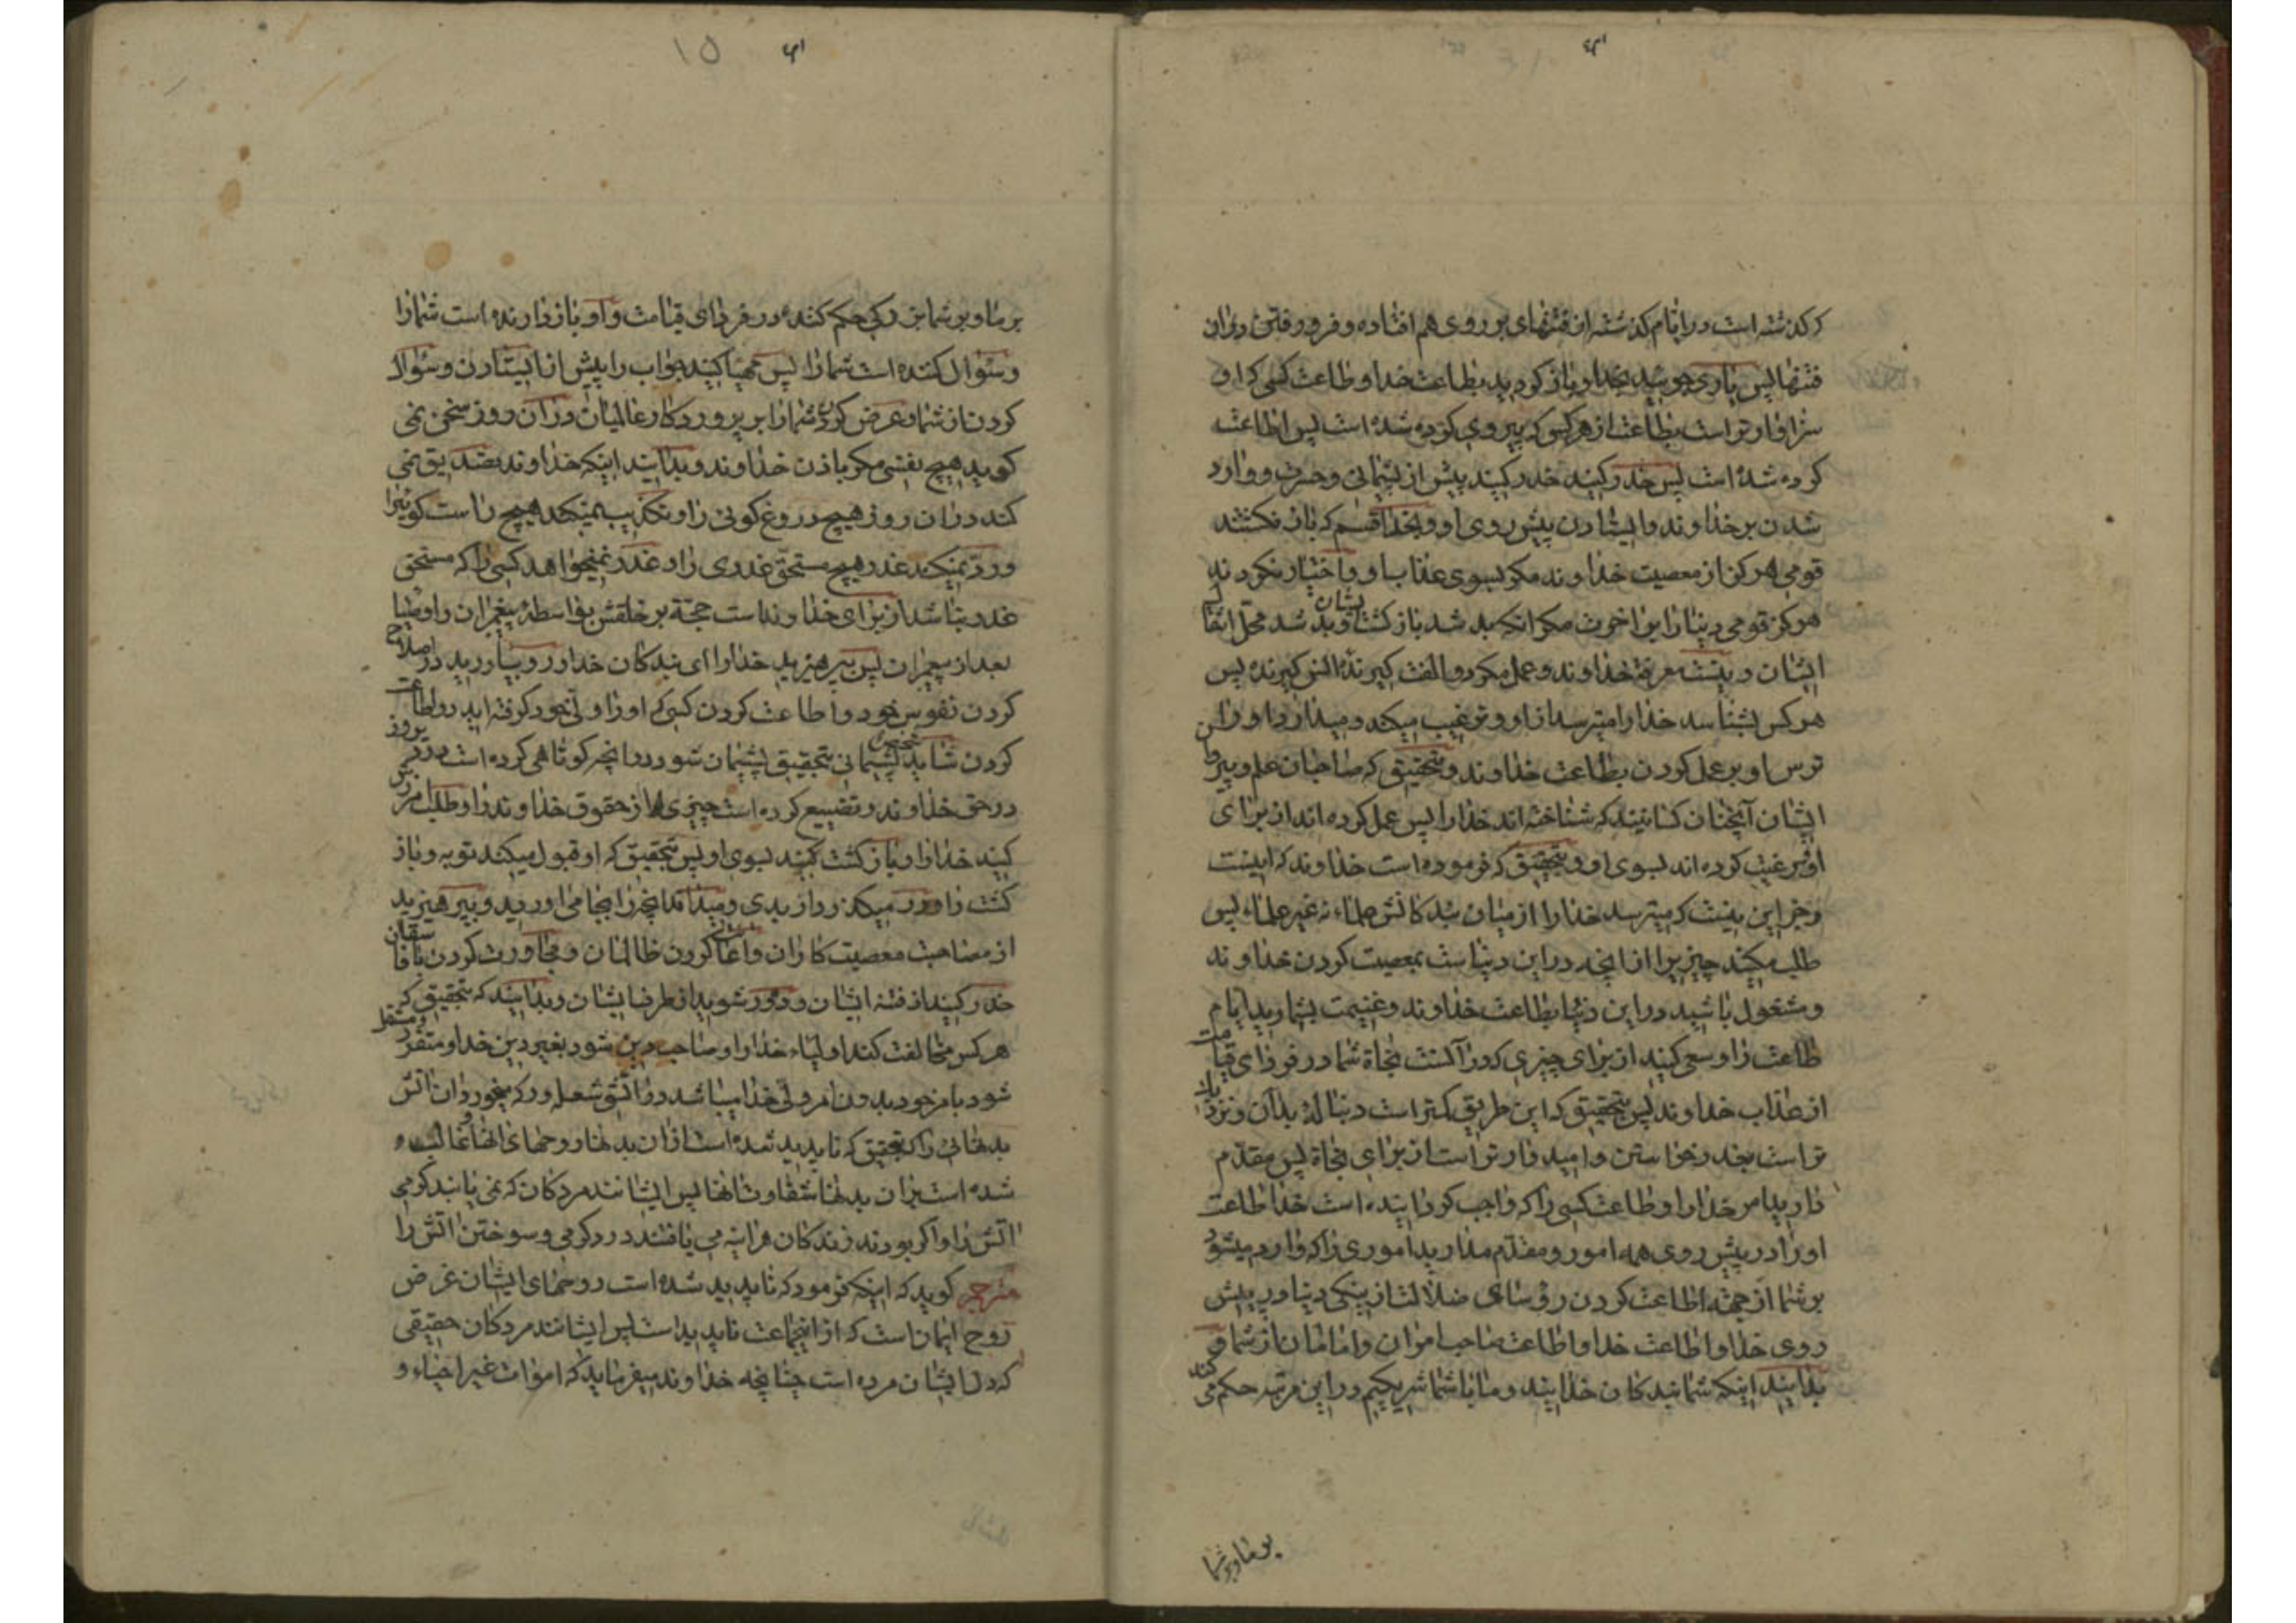 که گذشته است در ایام گذشته از فتنهای بر روی هم افتاده و فرو رفتن در ان
فتنها پس یاری جوئید بخدا و باز کردید بطاعت خدا و طاعت کسی که او
سزاوارتر است بطاعت از هر کس که پیروی کرده شده است پس اطاعت
کرده شده است پس حذر کنید حذر کنید پیش از پشیمانی و حسرت و وارد
شدن بر خداوند و ایستادن پیش روی او و بخدا قسم که باز نکشتند
قومی هرکز از معصیت خداوند مکر بسوی عذاب او و اختیار نکردند
هرکز قومی دنیا را بر اخرت مکر انکه بد شد باز کشت ایشان و بد شد محل
ایشان و نیست معرفة خداوند و عمل مکر دو الفت کیرنده انس کیرنده پس
هر کس بشناسد خدا را میترسد از او و ترغیب میکند و میدارد او را این
ترس او بر عمل کردن بطاعت خداوند و بتحقیق که صاحبان علم و پیروان
ایشان آنچنان کسانیند که شناخته اند خدا را پس عمل کرده اند از برای
او و رغبت کرده اند بسوی او و بتحقیق که فرموده است خداوند که اینست
و جز این نیست که میترسد خدا را از میان بندکانش علماء نه غیر علماء پس
طلب مکنید چیزیرا از انچه در این دنیاست بمعصیت کردن خداوند
و مشغول باشید در این دنیا بطاعت خداوند و غنیمت بشمارید ایام
طاعت را و سعی کنید از برای چیزی که در آنست نجاة شما در فردای قیامت
از عذاب خداوند پس بتحقیق که این طریق کمتر است دنباله بدان و نزدیک
تر است بعذر خواستن و امیدوارتر است از برای نجاة پس مقدم
دارید امر خدا را و طاعت کسی را که واجب کردانیده است خدا طاعت
او را در پیش روی همه امور و مقدم مدارید اموری را که وارد میشود
بر شما از جهة اطاعت کردن رؤسای ضلالت از نیکی دنیا در پیش
روی خدا و اطاعت خدا و اطاعت صاحب امران و امامان از شما و
بدانید اینکه شما بندکان خدائید و ما با شما شریکیم در این مرتبه حکم می کند
بر ما و بر شما
بر ما و بر شما بزرکی حکم کننده در فردای قیامت و او باز دارنده است شما را
و سئوال کننده است شما را پس مهیا کنید جواب را پیش از ایستادن و سئوال
کردن از شما و عرض کردن شما را بر پروردکار عالمیان در آن روز سخن نمی
کوید هیچ نفسی مکر باذن خداوند و بدانید اینکه خداوند تصدیق نمی
کند در ان روز هیچ دروغ کوئی را و تکذیب نمیکند هیچ راست کوئیرا
و رد نمیکند عذر هیچ مستحق عذری را و عذر نمیخواهد کسی را که مستحق
عذر نباشد از برای خداوند است حجة بر خلقش بواسطه پیغمبران و اوصیا
بعد از پیغمبران پس بپرهیزید خدا را ای بندکان خدا و رو بیاورید در اصلاح
کردن نفوس خود و اطاعت کردن کسی که او را ولی خود کرفته اید در اطاعت
کردن شاید پشیمانی بتحقیق پشیمان شود در انچه کوتاهی کرده است دیروز
در حق خداوند و تضییع کرده است چیزی را از حقوق خداوند را و طلب امرزش
کنید خدا را و باز کشت کنید بسوی او پس بتحقیق که او قبول میکند توبه و باز
کشت را و در میکذرد از بدی و میداند انچه را بجا می اورید و بپرهیزید
از مصاحبت معصیت کاران و اعانت کردن ظالمان و مجاورت کردن با فاسقان
حذر کنید از فتنه ایشان و دور شوید از طرف ایشان و بدانید که بتحقیق که
هر کس مخالفت کند اولیاء خدا را و صاحب دین شود بغیر دین خدا و متفرد و مستقل
شود بامر خود بدون امر ولی خدا میباشد در اتش شعله ور که میخورد ان اتش
بدنهائی را که بتحقیق که ناپدید شده است از ان بدنها روحهای انها و غالب
شده است بر ان بدنها شقاوت انها پس ایشانند مردکان که نمی یابند کرمی
اتش را و اکر بودند زندکان هراینه می یافتند درد کرمی و سوختن اتش را
مترجم کوید که اینکه فرمود که ناپدید شده است روحهای ایشان غرض
روح ایمان است که از انجماعت ناپدید است پس ایشانند مردکان حقیقی
که دل ایشان مرده است چنانچه خداوند میفرماید که اموات غیر احیاء و